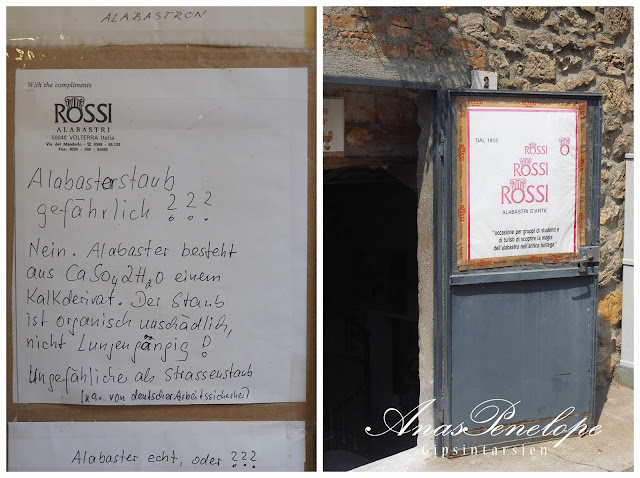 ALABASTRON
With the compliments
ROSSI
ALABASTRI
56048 VOLTERRA Italia
Via del Mandorlo -
Alabasterstaub
gefährlich ? ? ?
Nein. Alabaster besteht
aus CaSO4 2H2O einem
Kalkderivat. Der Staub
ist organisch unschädlich,
nicht Lungengängig !
Ungefährlicher als Strassenstaub
(u.a. von deutscher Arbeitssicherheit)
Alabaster echt, oder ???
2
DAL 1912
ROSSI
ROSSI
ROSSI
ALABASTRI D'ARTE
"occasione per gruppi di studenti e
di turisti di scoprire la magia
dell'alabastro nell'antica bottega"
AnasPenelope
Gipsintarsien